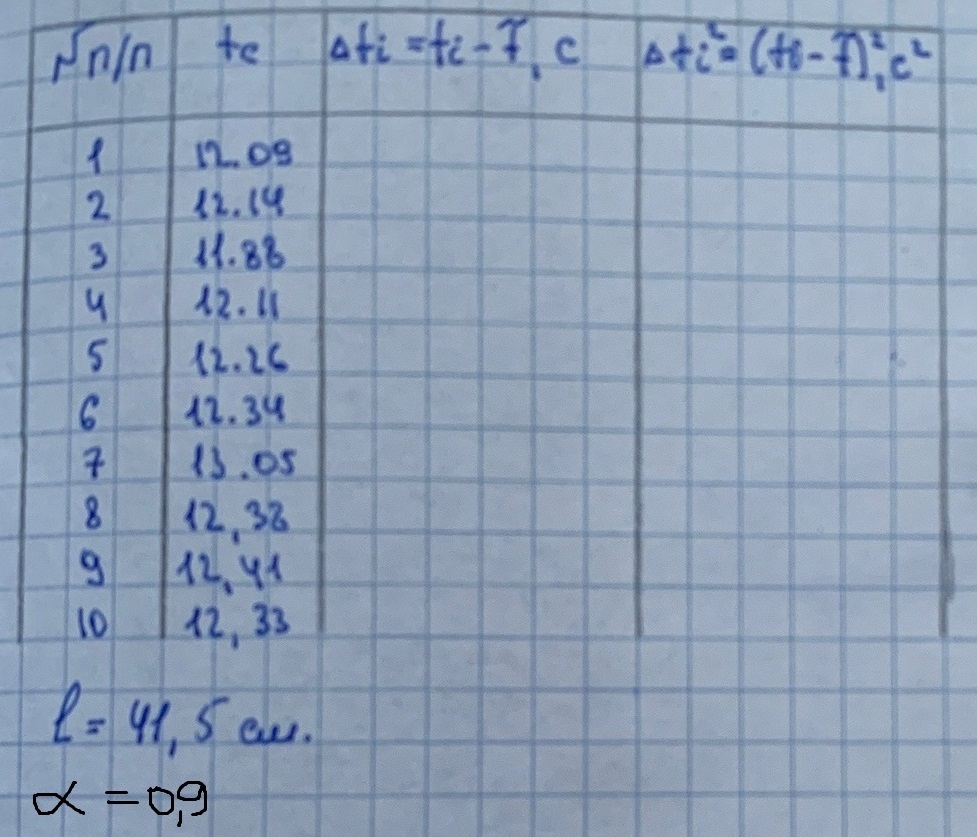 № п/п tc Δti = ti - t̄, c Δti² = (ti - t̄)², c²
1 12.09
2 12.14
3 11.88
4 12.11
5 12.26
6 12.34
7 13.05
8 12,38
9 12,41
10 12,33
l = 41,5 см.
α = 0,9